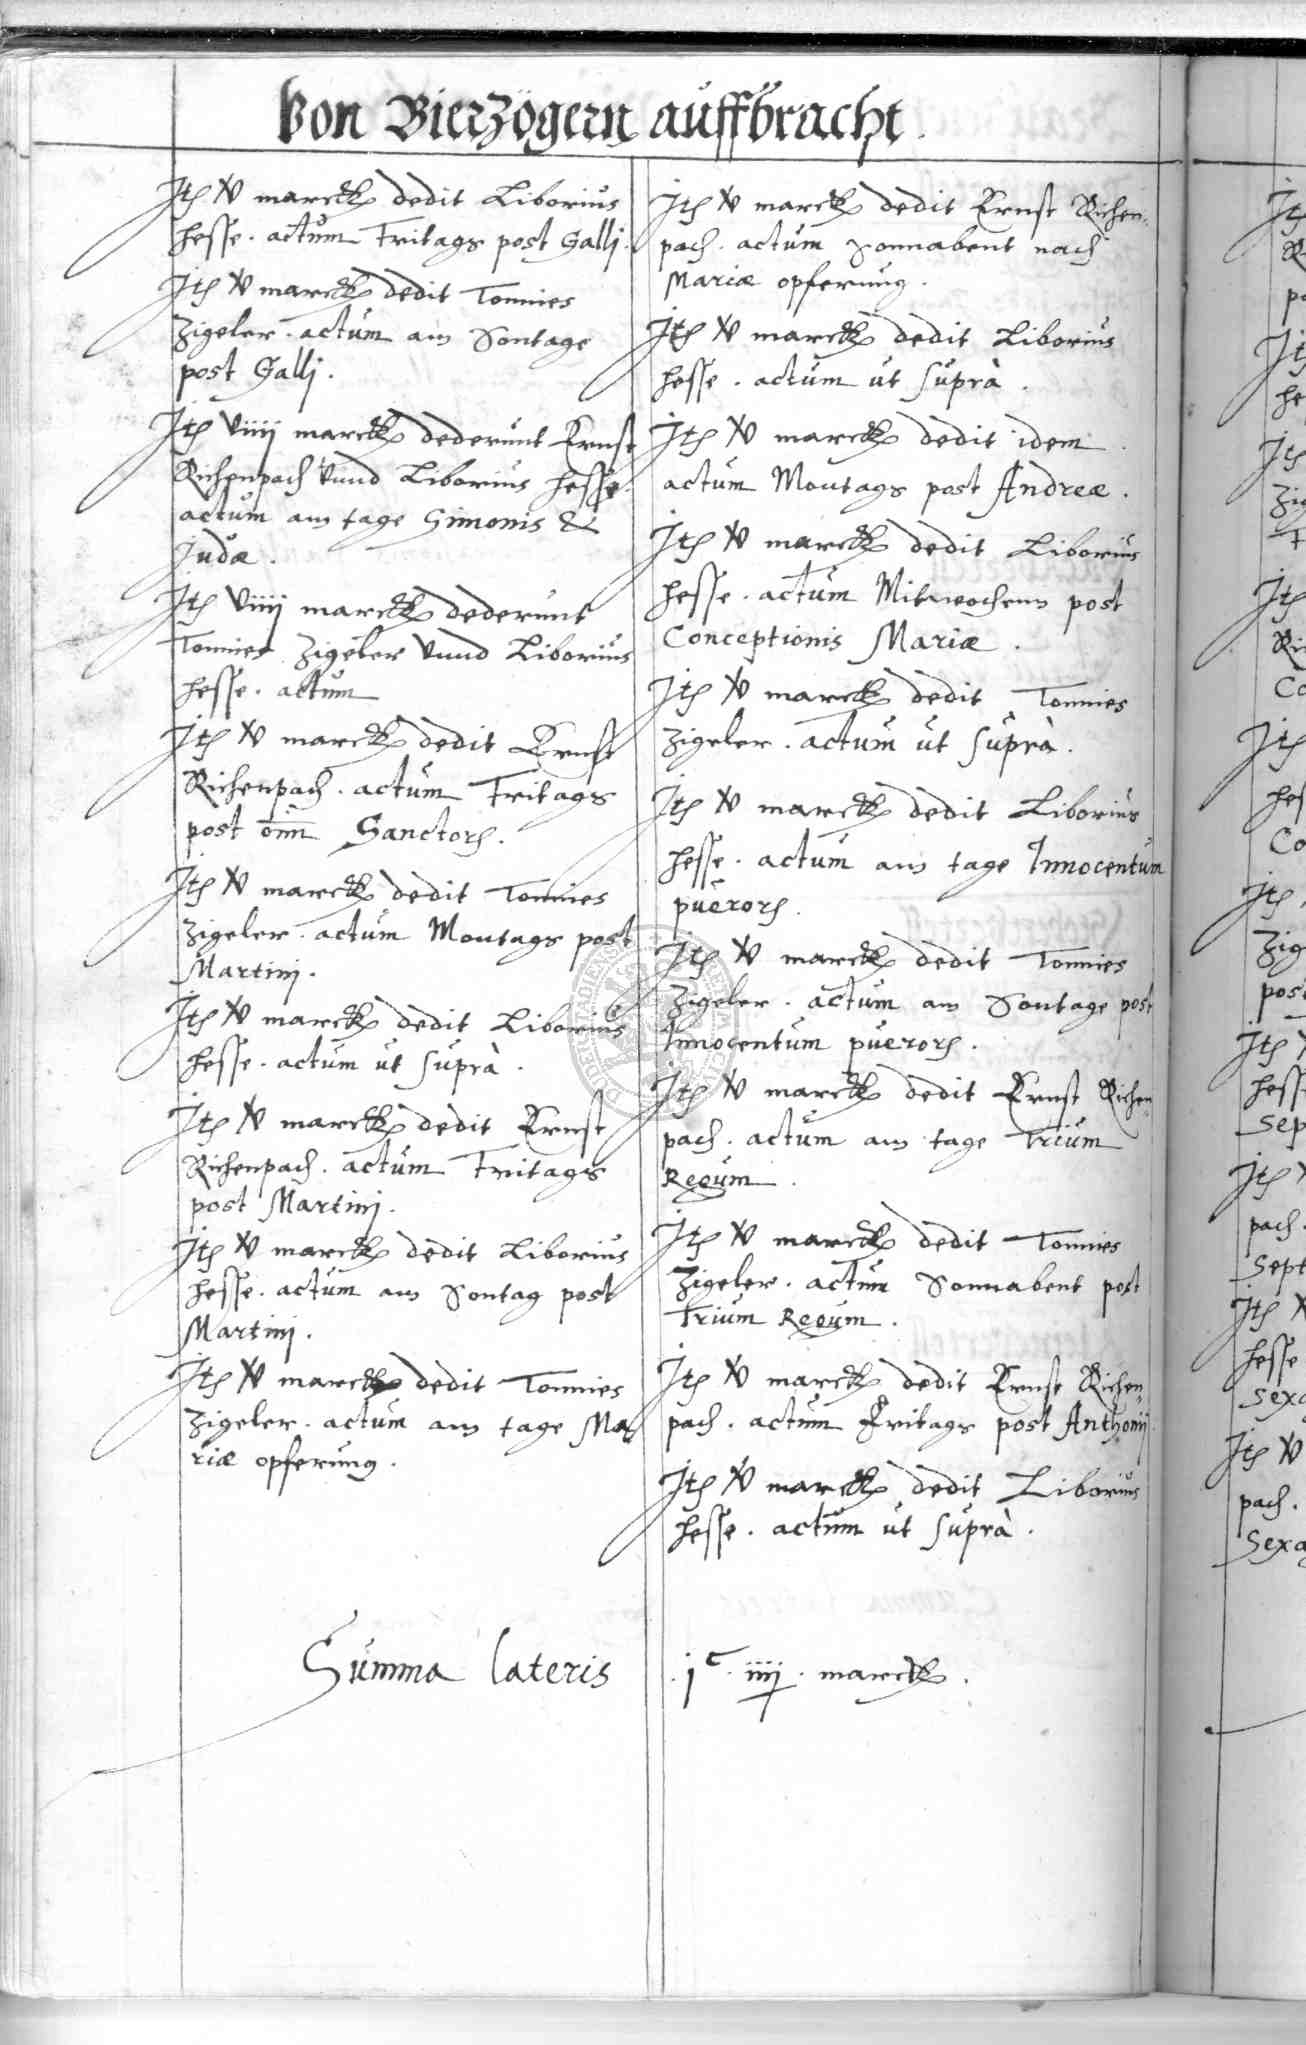 Von Bierzögern auffbracht.
Jtē v̷ marck dedit Liborius
Hesse. actum Fritags post Galli.
Jtē v̷ marck dedit Tonnies
Zigeler. actum am Sontage
post Galli.
Jtē viiij marck dederunt Ernst
Richenpach vund Liborius Hesse.
actum am tage Simonis &
Judæ.
Jtē viiij marck dederunt
Tonnies Zigeler vund Liborius
Hesse. actum
Jtē v̷ marck dedit Ernst
Richenpach. actum Fritags
post oīm Sanctorꝭ.
Jtē v̷ marck dedit Tonnies
Zigeler. actum Montags post
Martinj.
Jtē v̷ marck dedit Liborius
Hesse. actum ut suprà.
Jtē v̷ marck dedit Ernst
Richenpach. actum Fritags
post Martinj.
Jtē v̷ marck dedit Liborius
Hesse. actum am Sontag post
Martinj.
Jtē v̷ marck dedit Tonnies
Zigeler. actum am tage Ma
riæ opferung.
Jtē v̷ marck dedit Ernst Richen-
pach. actum Sonnabent nach
Mariæ opferung.
Jtē v̷ marck dedit Liborius
Hesse. actum ut suprà.
Jtē v̷ marck dedit idem
actum Montags post Andreæ.
Jtē v̷ marck dedit Liborius
Hesse. actum Mitwochens post
Conceptionis Mariæ.
Jtē v̷ marck dedit Tonnies
Zigeler. actum ut suprà.
Jtē v̷ marck dedit Liborius
Hesse. actum am tage Innocentum
puerorꝭ.
Jtē v̷ marck dedit Tonnies
Zigeler. actum am Sontage post
Innocentum puerorꝭ.
Jtē v̷ marck dedit Ernst Richen-
pach. actum am tage Trium
Regum.
Jtē v̷ marck dedit Tonnies
Zigeler. actum Sonnabent post
Trium Regum.
Jtē v̷ marck dedit Ernst Richen-
pach. actum Fritags post Anthonij.
Jtē v̷ marck dedit Liborius
Hesse. actum ut suprà.
Summa lateris .jᶜ. iiij. marck.